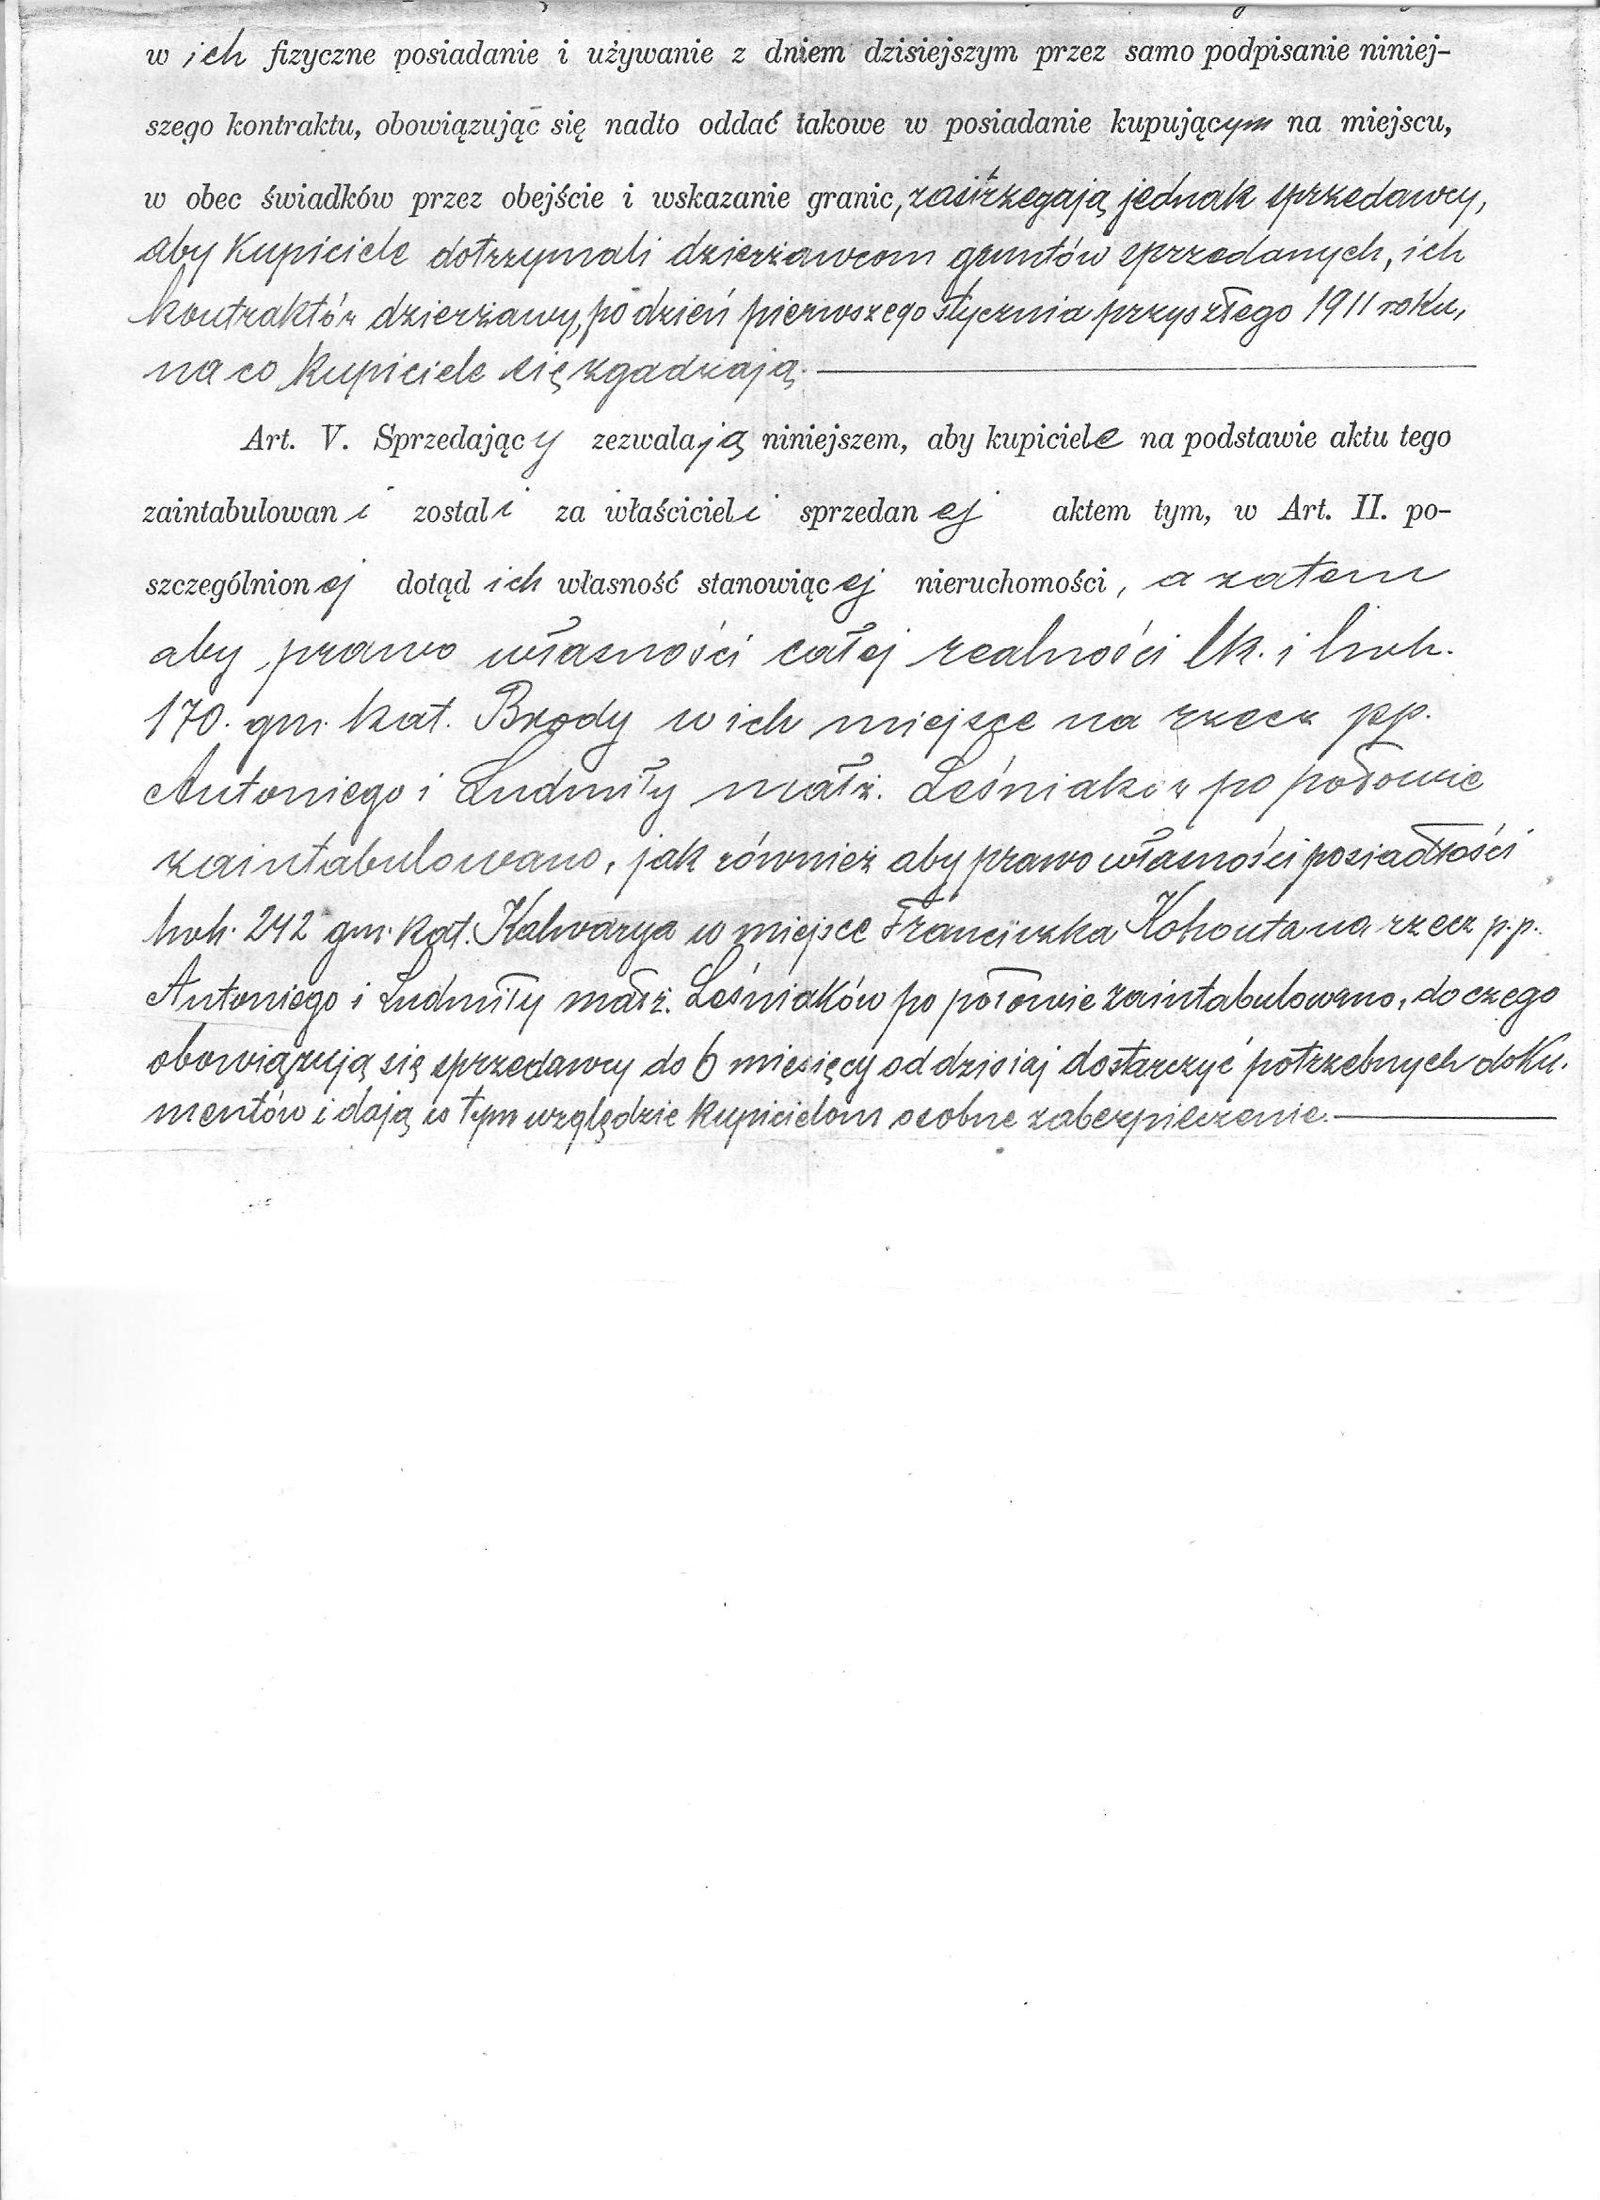 w ich fizyczne posiadanie i używanie z dniem dzisiejszym przez samo podpisanie niniej-
szego kontraktu, obowiązując się nadto oddać takowe w posiadanie kupującym na miejscu,
w obec świadków przez obejście i wskazanie granic, zastrzegają jednak sprzedawcy,
aby Kupiciele dotrzymali dzierżawcom gruntów sprzedanych, ich
kontraktów dzierżawy, po dzień pierwszego stycznia przyszłego 1911 roku,
na co kupiciele się zgadzają.
Art. V. Sprzedający zezwalają niniejszem, aby kupiciele na podstawie aktu tego
zaintabulowani zostali za właścicieli sprzedanej aktem tym, w Art. II. po-
szczególnionej dotąd ich własność stanowiącej nieruchomości, a zatem
aby prawo własności całej realności lk. i lwh.
170. gm. kat. Brody w ich miejsce na rzecz pp.
Antoniego i Ludmiły małż. Leśniaków po połowie
zaintabulowano, jak również aby prawo własności posiadłości
lwh. 242 gm. kat. Kalwarya w miejsce Franciszka Kohouta na rzecz p.p.
Antoniego i Ludmiły małż. Leśniaków po połowie zaintabulowano, do czego
obowiązują się sprzedawcy do 6 miesięcy od dzisiaj dostarczyć potrzebnych doku-
mentów i dają w tym względzie kupicielom osobne zabezpieczenie.